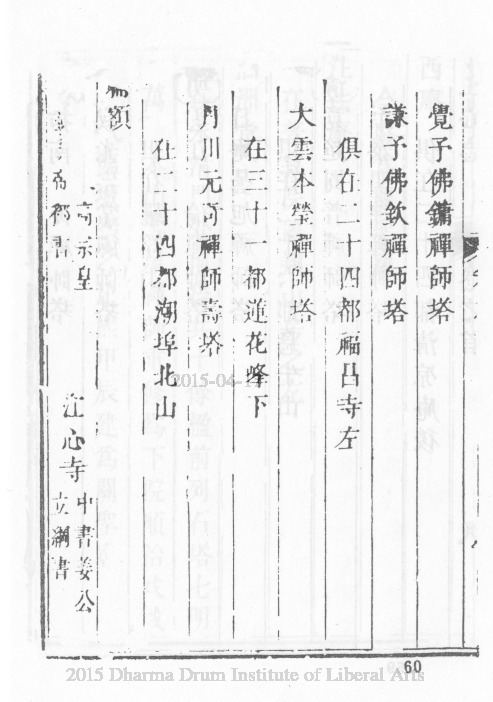 覺予佛鏞禪師塔
謙予佛欽禪師塔
俱在二十四都福昌寺左
大雲本瑩禪師塔
在三十一都蓮花峰下
川元奇禪師壽塔
在二十四都潮埠北山
額
高宗皇
書
江心寺
中書姜公
立綱書
2015-04-
60
2015 Dharma Drum Institute of Liberal Arts